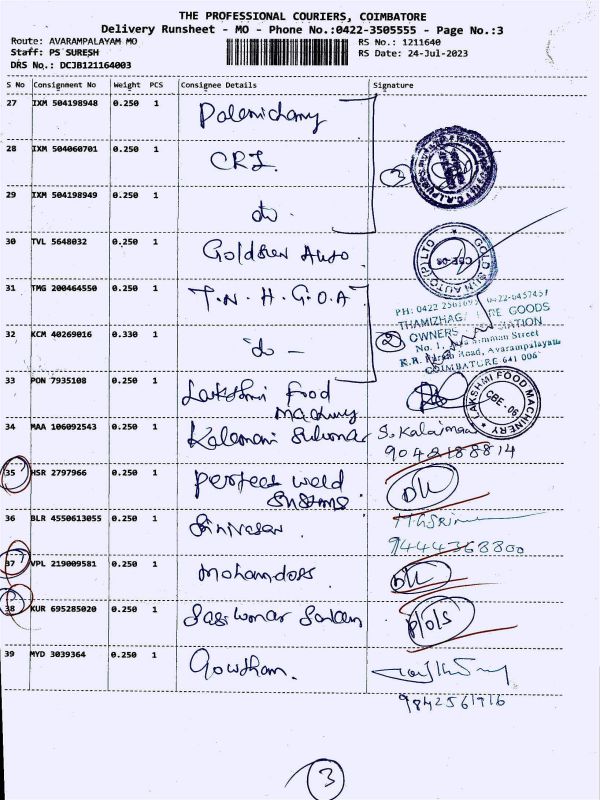 THE PROFESSIONAL COURIERS, COIMBATORE
Delivery Runsheet - MO - Phone No.:0422-3505555 - Page No.:3
Route: AVARAMPALAYAM MO
RS No.: 1211640
Staff: PS SURESH
RS Date: 24-Jul-2023
DRS No.: DCJB121164003
S No Consignment No Weight PCS Consignee Details Signature
27 IXM 504198948 0.250 1 Palanichamy
28 IXM 504060701 0.250 1 CRI. 3
29 IXM 504198949 0.250 1 do.
30 TVL 5648032 0.250 1 Goldsun Auto GOLD SUN AUTO (P) LTD CBE-06
31 TMG 200464550 0.250 1 T.N.H.G.O.A
PH: 0422
OWNERS
32 KCM 40269016 0.330 1 do - 2
No. 1, Street
Road, Avarampalayam
COIMBATURE 641 006
33 PON 7935108 0.250 1 Lakshmi Food Machinery LAKSHMI FOOD MACHINERY CBE-06
34 MAA 106092543 0.250 1 Kalamani
9042188814
35 HSR 2797966 0.250 1 Perfect Weld Systems D/L
36 BLR 4550613055 0.250 1 Srinivasan
9444368800
37 VPL 219009581 0.250 1 Mohandoss D/L
38 KUR 695285020 0.250 1 Sasikumar
39 MYD 3039364 0.250 1 Gowtham.
9842561716
3